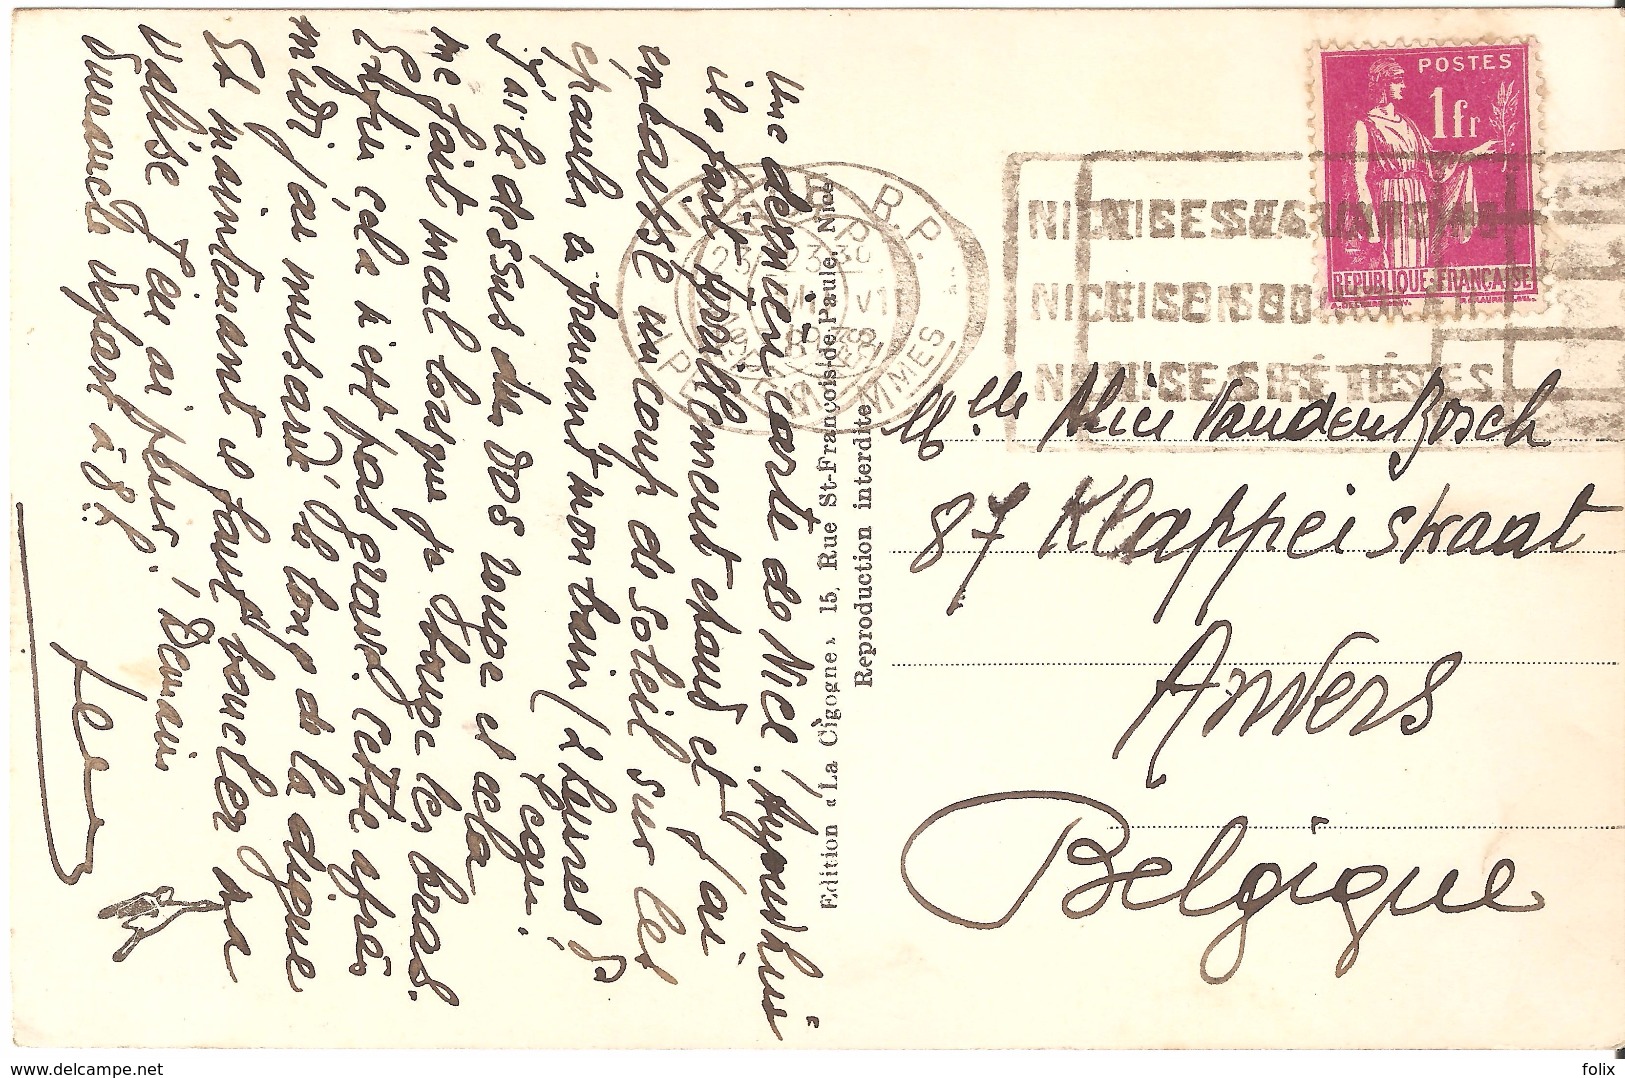 Une dernière carte de Nice. Aujourd'hui
il a fait pareillement chaud et j'ai
embauché un coup de soleil sur les
épaules en prenant mon bain (2 heures)
J'ai le dessus du dos rouge et cela
me fait mal lorsque je bouge les bras.
Enfin cela n'est pas grave. Cette après
midi j'ai musardé le long de la digue
Et maintenant il faut boucler sa
valise. J'en ai peur! Demain
dimanche départ à 8h.
Edition «La Cigogne» 15, Rue St-François-de-Paule, Nice
Reproduction interdite
R.P.
23 30
VI
38
ALPES MARITIMES
NICE SES
NICE SON
NICE SES FÊTES
POSTES
1 fr
REPUBLIQUE FRANÇAISE
Melle Alice Vandenbosch
87 Klappeistraat
Anvers
Belgique
delcampe.net
folix